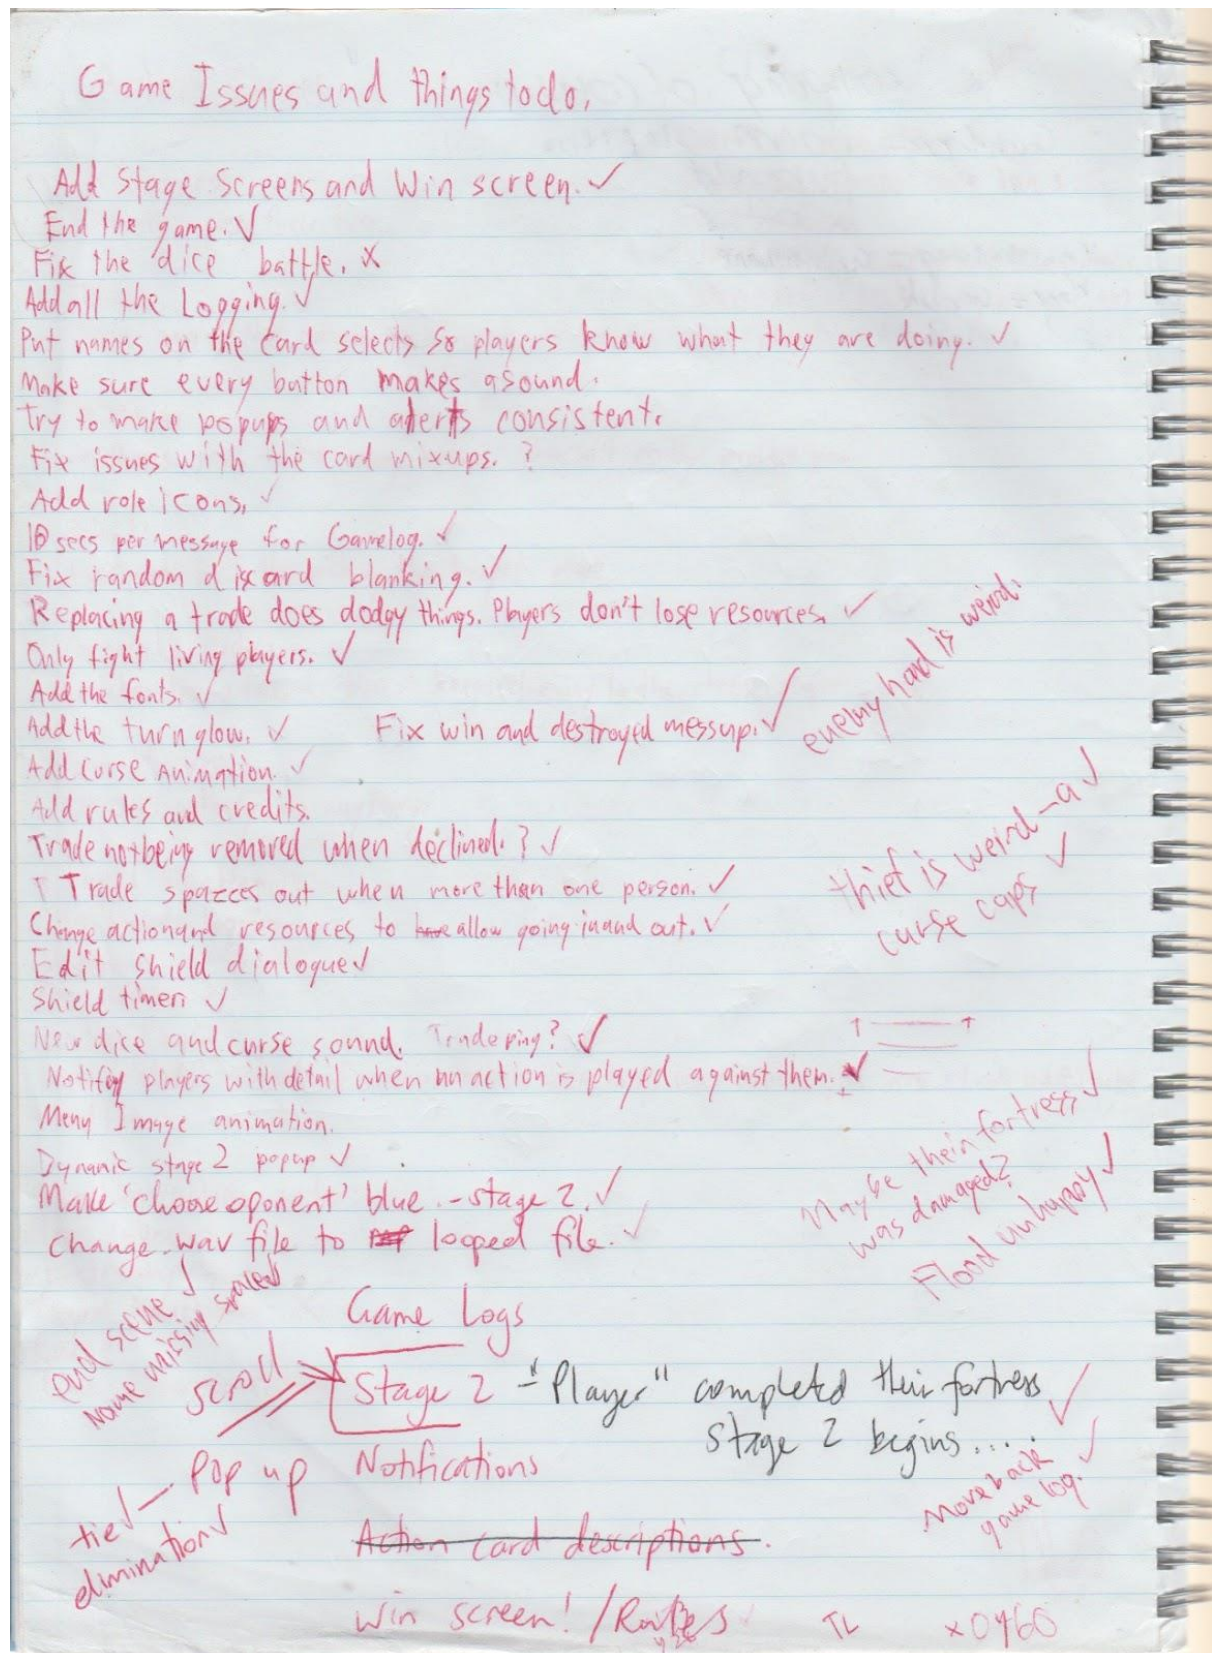 Game Issues and things todo.
Add Stage Screens and Win screen. ✓
End the game. ✓
Fix the dice battle. x
Add all the Logging. ✓
Put names on the card selects so players know what they are doing. ✓
Make sure every button makes a sound.
Try to make popups and alerts consistent.
Fix issues with the card mixups. ?
Add role icons. ✓
10 secs per message for Gamelog. ✓
Fix random discard blanking. ✓
Replacing a trade does dodgy things. Players don't lose resources. ✓
enemy hand is weird.
Only fight living players. ✓
Add the fonts. ✓
Add the turn glow. ✓ Fix win and destroyed messup. ✓
Add Curse Animation. ✓
Add rules and credits.
thief is weird -a ✓
curse caps ✓
Trade not being removed when declined. ? ✓
Trade spazzes out when more than one person. ✓
Change action and resources to allow going in and out. ✓
Edit shield dialogue ✓
Shield timer ✓
New dice and curse sound. Trade ping? ✓
Notify players with detail when an action is played against them. ✓
Menu Image animation.
Dynamic stage 2 popup ✓
Maybe their fortress ✓
was damaged?
Flood unhappy ✓
Make 'choose oponent' blue. - stage 2. ✓
Change .wav file to looped file. ✓
end scene ✓
Name missing space ✓
Game Logs
scroll
Stage 2 - "Player" completed their fortress
Stage 2 begins..... ✓
Move back
game log. ✓
Pop up Notifications
tie ✓
elimination ✓
Action card descriptions.
Win screen! /
TL x0460